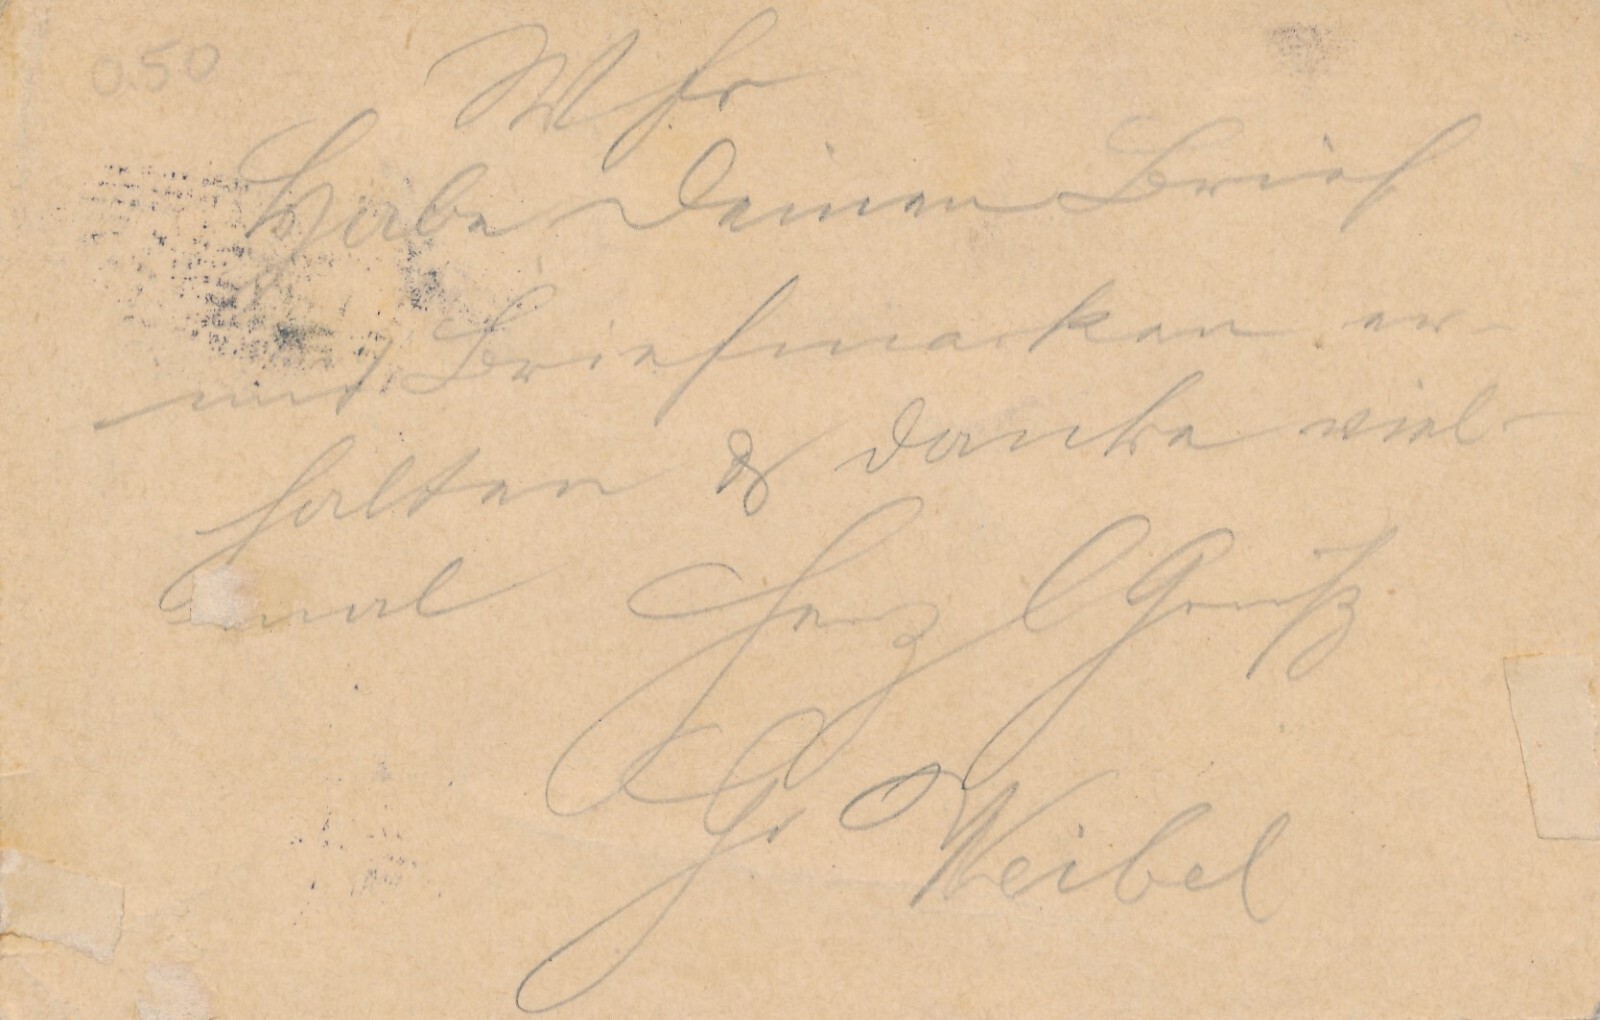 0.50
W Fr
Habe Deinen Brief
mit Briefmarken er-
halten & danke viel-
mal Herzl Gruß
Fr Weibel